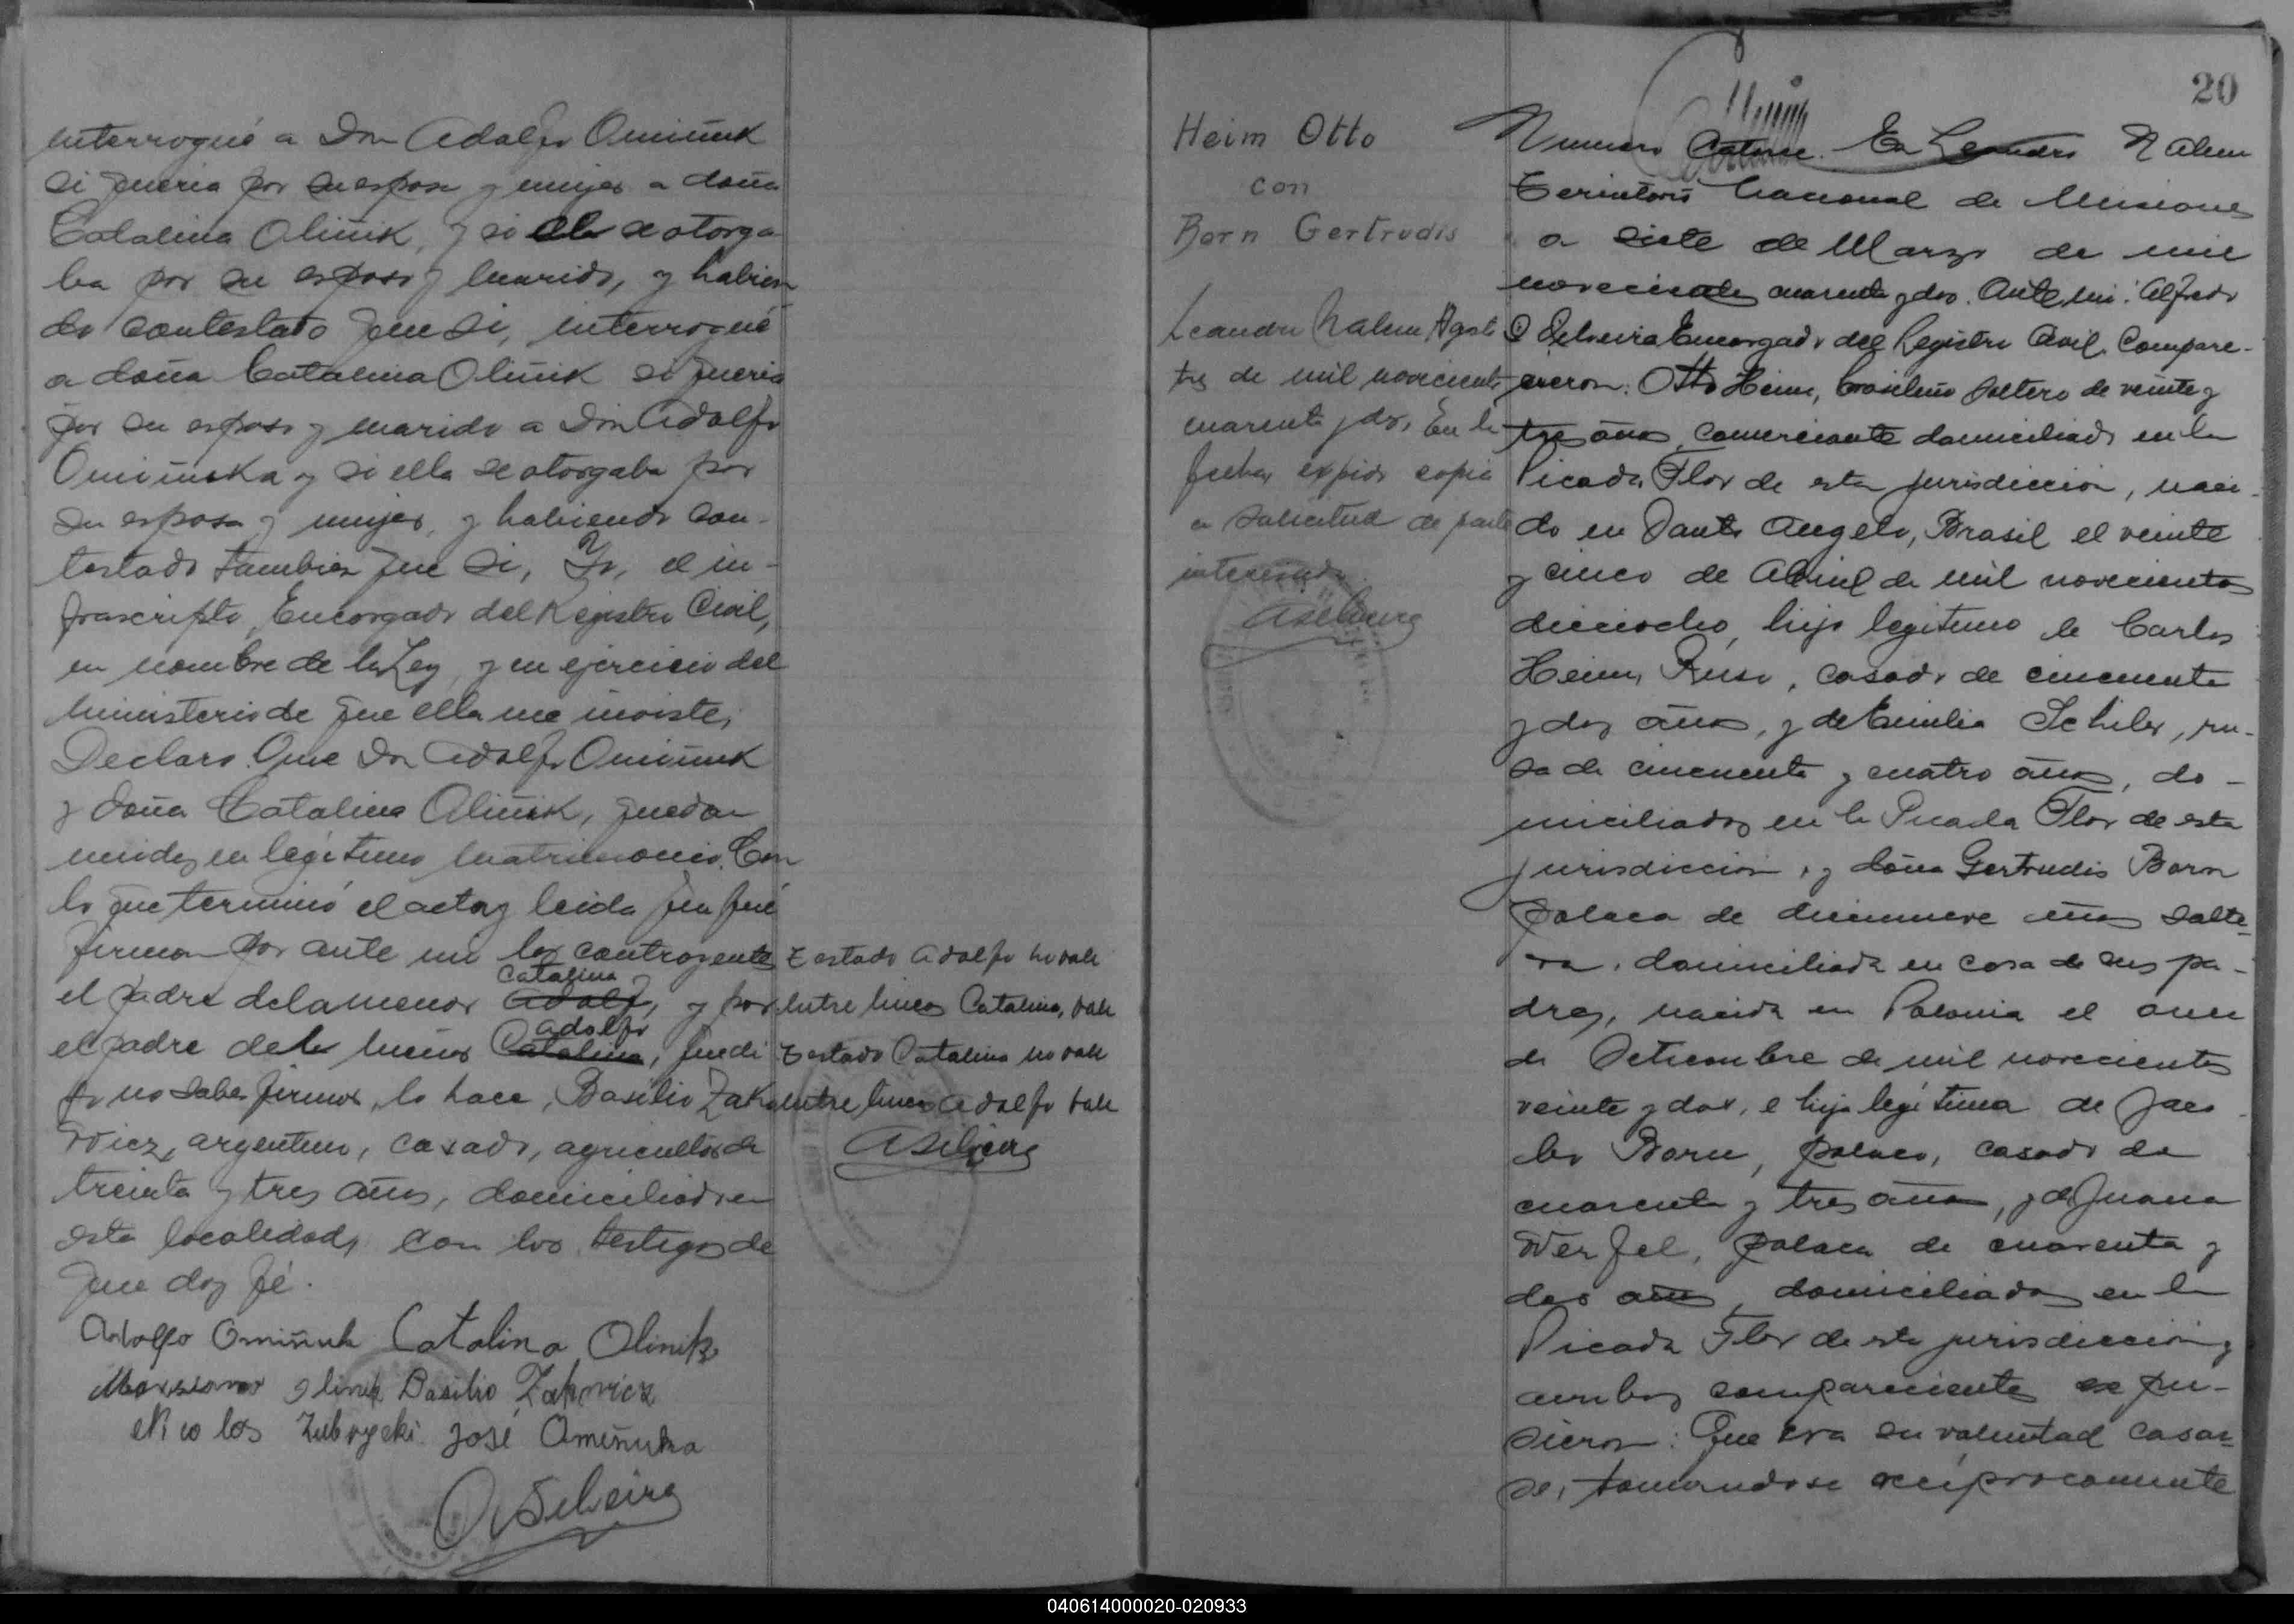 interrogué a Don Adolfo Omiñuk
si queria por su esposa y mujer a doña
Catalina Oliñik, y si el se otorga
ba por su esposo y marido, y habien
do contestado que si, interrogué
a doña Catalina Oliñik si queria
por su esposo y marido a Don Adolfo
Omiñuska y si ella se otorgaba por
su esposa y mujer, y habiendo con-
testado tambien que si, Yo, el in-
frascripto, Encargado del Registro Civil,
en nombre de la Ley, y en ejercicio del
ministerio de que ella me inviste;
Declaro: Que Don Adolfo Omiñuk
y doña Catalina Oliñik, quedan
unidos en legitimo matrimonio. Con
lo que terminó el acta y leida que fué
firman por ante mi los contrayentes
Catalina
el padre de la menor Adolf, y por
Adolfo
el padre de la menor Catalina, que di
jo no saber firmar, lo hace, Basilio Zako
wicz, argentino, casado, agricultor de
treinta y tres años, domiciliado en
esta localidad, con los testigos de
que doy fé.
Adolfo Omiñuk Catalina Olinik
Olinik Basilio Zakovicz
Zubrycki José Omeñuka
ASilveira
Testado Adolfo no vale
entre lineas Catalina, vale
Testado Catalina no vale
entre lineas Adolfo vale
ASilveira
20
Heim Otto
con
Born Gertrudis
Leandro N Alem Agosto
tres de mil novecientos
cuarenta y dos, En la
fecha, expido copia
a solicitud de parte
interesada
ASilveira
Numero Catorce. En Leandro N Alem
Territorio Nacional de Misiones
a siete de Marzo de mil
novecientos cuarenta y dos. Ante mi: Alfredo
O Silveira Encargado del Registro Civil, Compare-
cieron: Otto Heim, brasileño soltero de veinte y
tres años, comerciante domiciliado en la
Picada Flor de esta jurisdiccion, naci-
do en Santo Angelo, Brasil el veinte
y cinco de Abril de mil novecientos
dieciocho, hijo legitimo de Carlos
Heim, Ruso, casado de cincuenta
y dos años, y de Emilia Schiler, ru-
sa de cincuenta y cuatro años, do-
miciliados en la Picada Flor de esta
jurisdiccion, y doña Gertrudis Born
polaca de diecinueve años solte-
ra, domiciliada en casa de sus pa-
dres, nacida en Polonia el once
de Setiembre de mil novecientos
veinte y dos, e hija legitima de Jaco
bo Born, polaco, casado de
cuarenta y tres años, y de Juana
Werfel, polaca de cuarenta y
dos años, domiciliados en la
Picada Flor de esta jurisdiccion y
ambos comparecientes expu-
sieron: Que era su voluntad casar-
se, tomandose reciprocamente
040614000020-020933